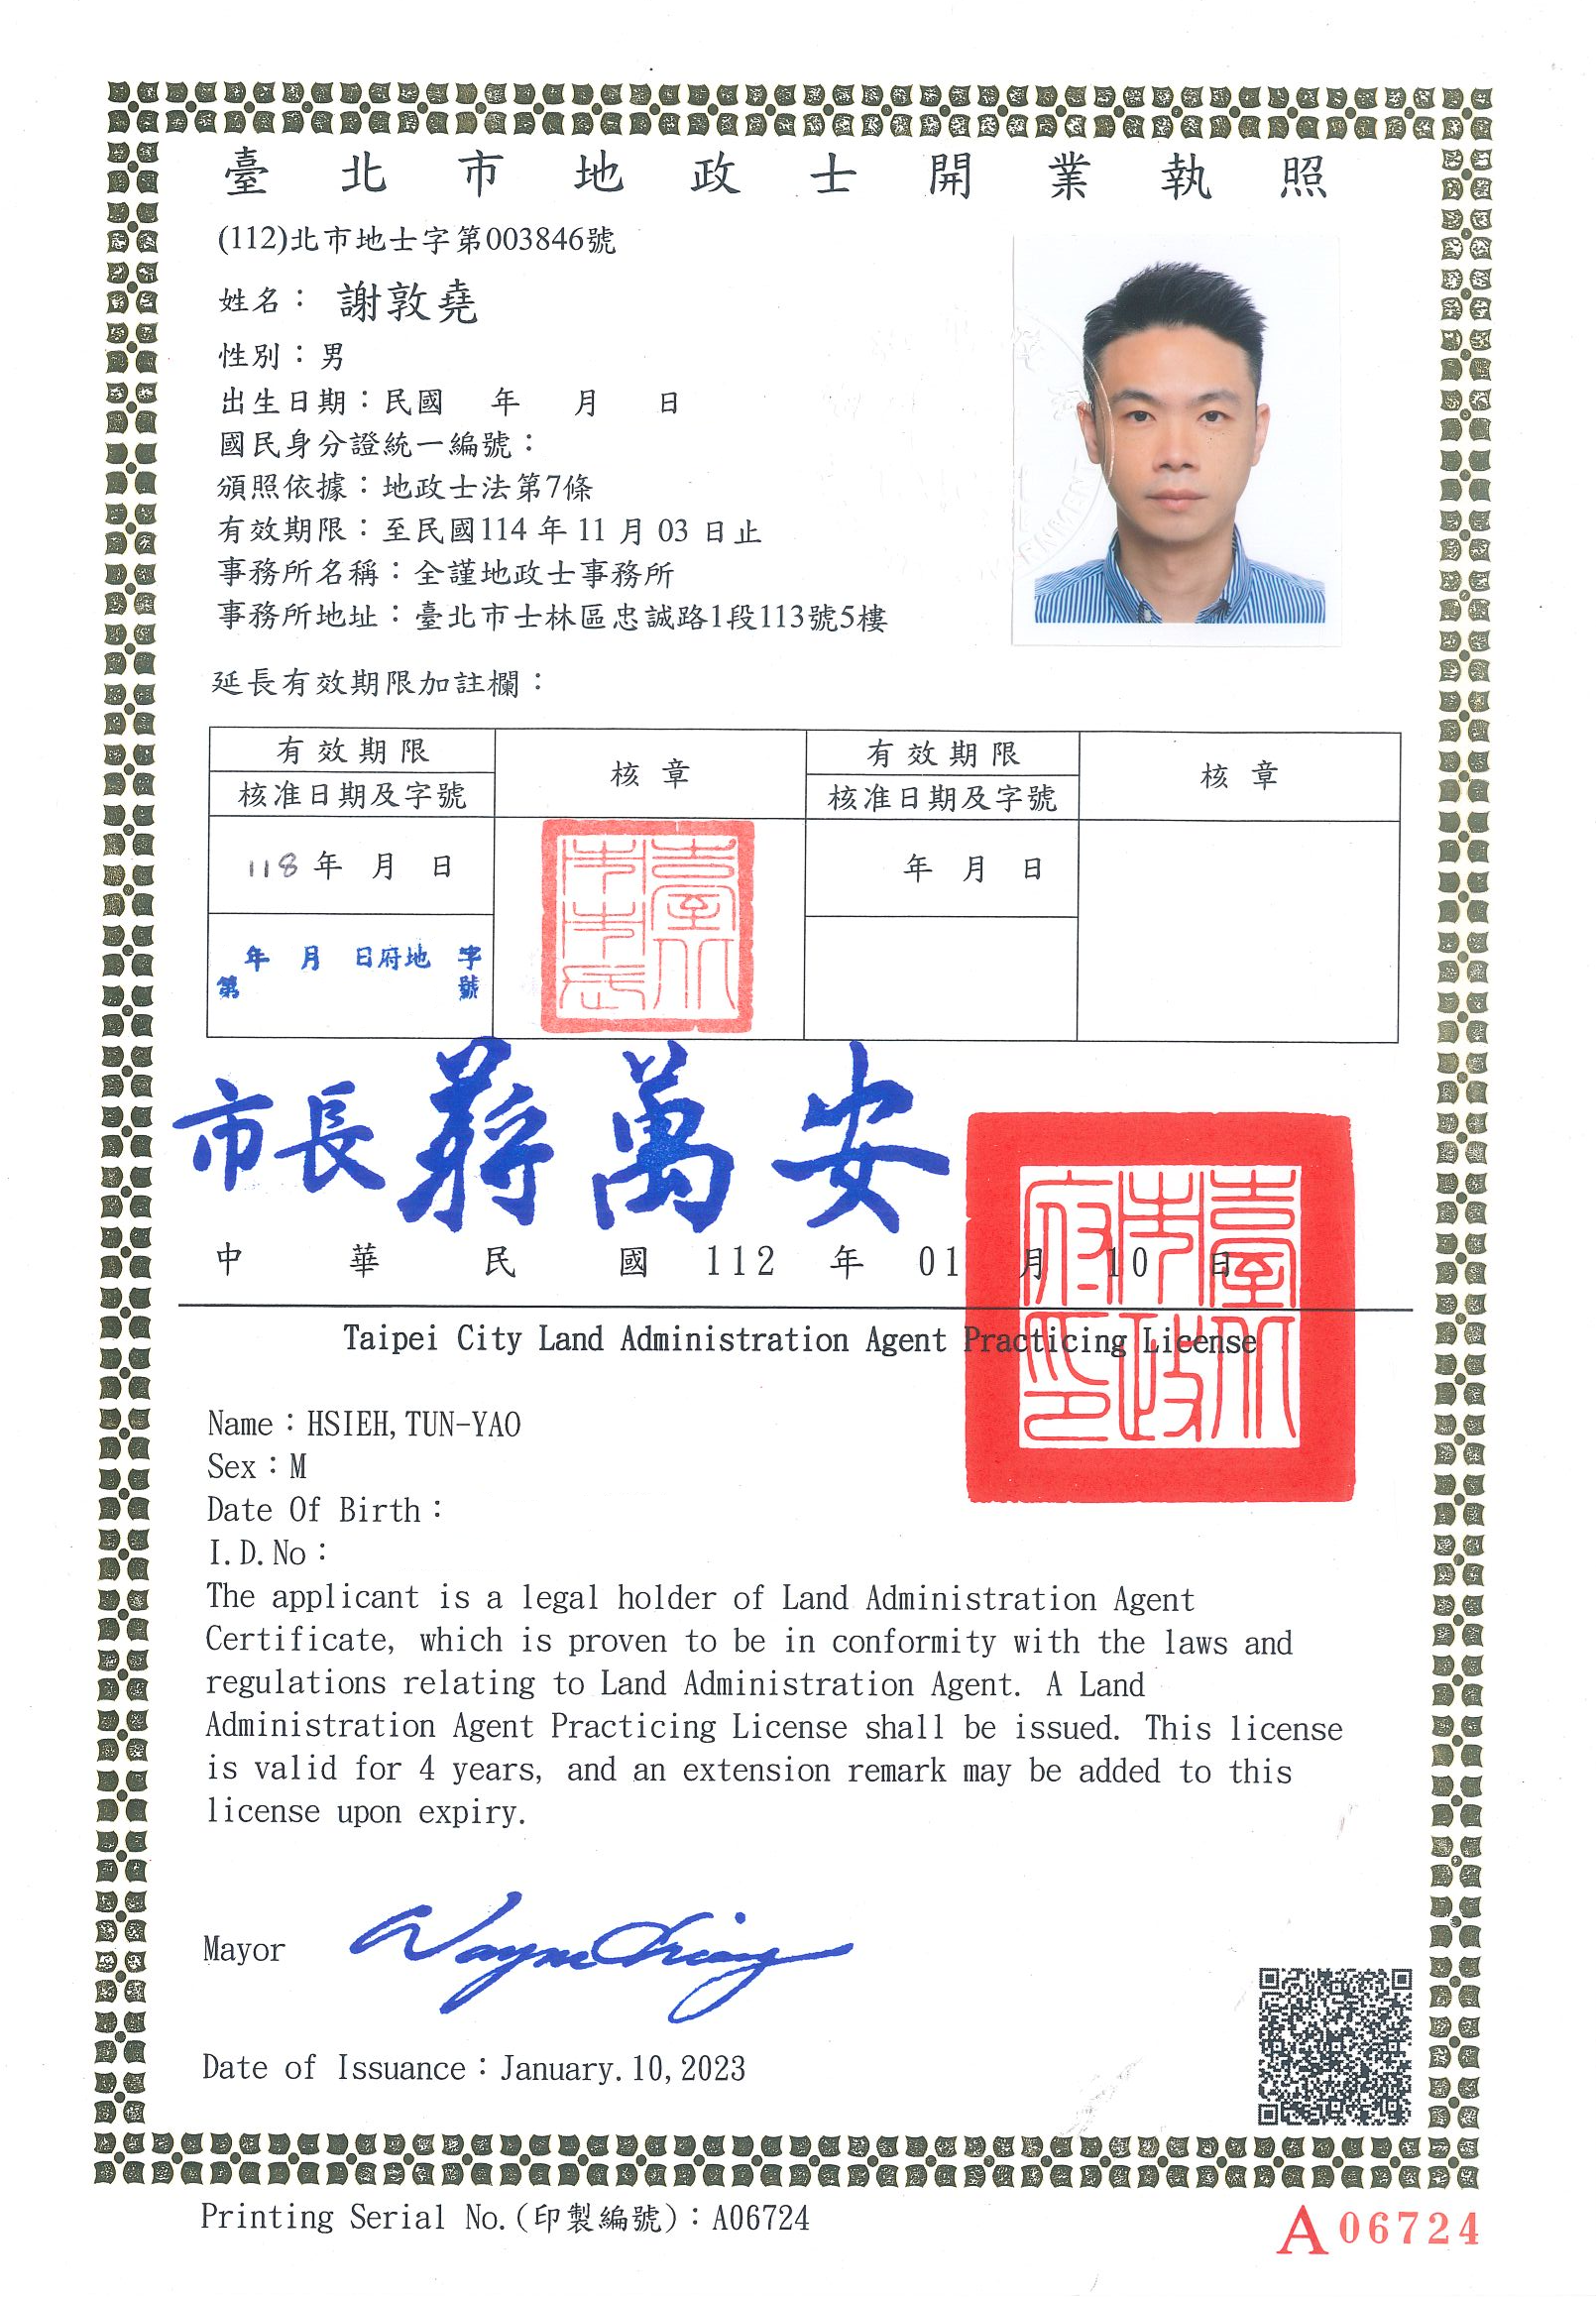 臺北市地政士開業執照
(112)北市地士字第003846號
姓名：謝敦堯
性別：男
出生日期：民國 年 月 日
國民身分證統一編號：
頒照依據：地政士法第7條
有效期限：至民國114年11月03日止
事務所名稱：全謹地政士事務所
事務所地址：臺北市士林區忠誠路1段113號5樓
延長有效期限加註欄：
有效期限 核章 有效期限 核章
核准日期及字號 核准日期及字號
118年 月 日 年 月 日
年 月 日府地 字
第 號
臺北市市長
市長蔣萬安
中華民國112年01月10日
臺北市政府印
Taipei City Land Administration Agent Practicing License
Name：HSIEH,TUN-YAO
Sex：M
Date Of Birth：
I.D.No：
The applicant is a legal holder of Land Administration Agent
Certificate, which is proven to be in conformity with the laws and
regulations relating to Land Administration Agent. A Land
Administration Agent Practicing License shall be issued. This license
is valid for 4 years, and an extension remark may be added to this
license upon expiry.
Mayor Wayne Chiang
Date of Issuance：January.10,2023
Printing Serial No.(印製編號)：A06724
A06724